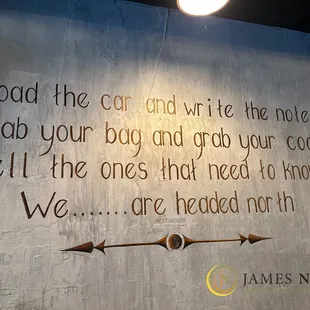 oad the car and write the note
ab your bag and grab your coa
ell the ones that need to know
We.......are headed north
JAMES N